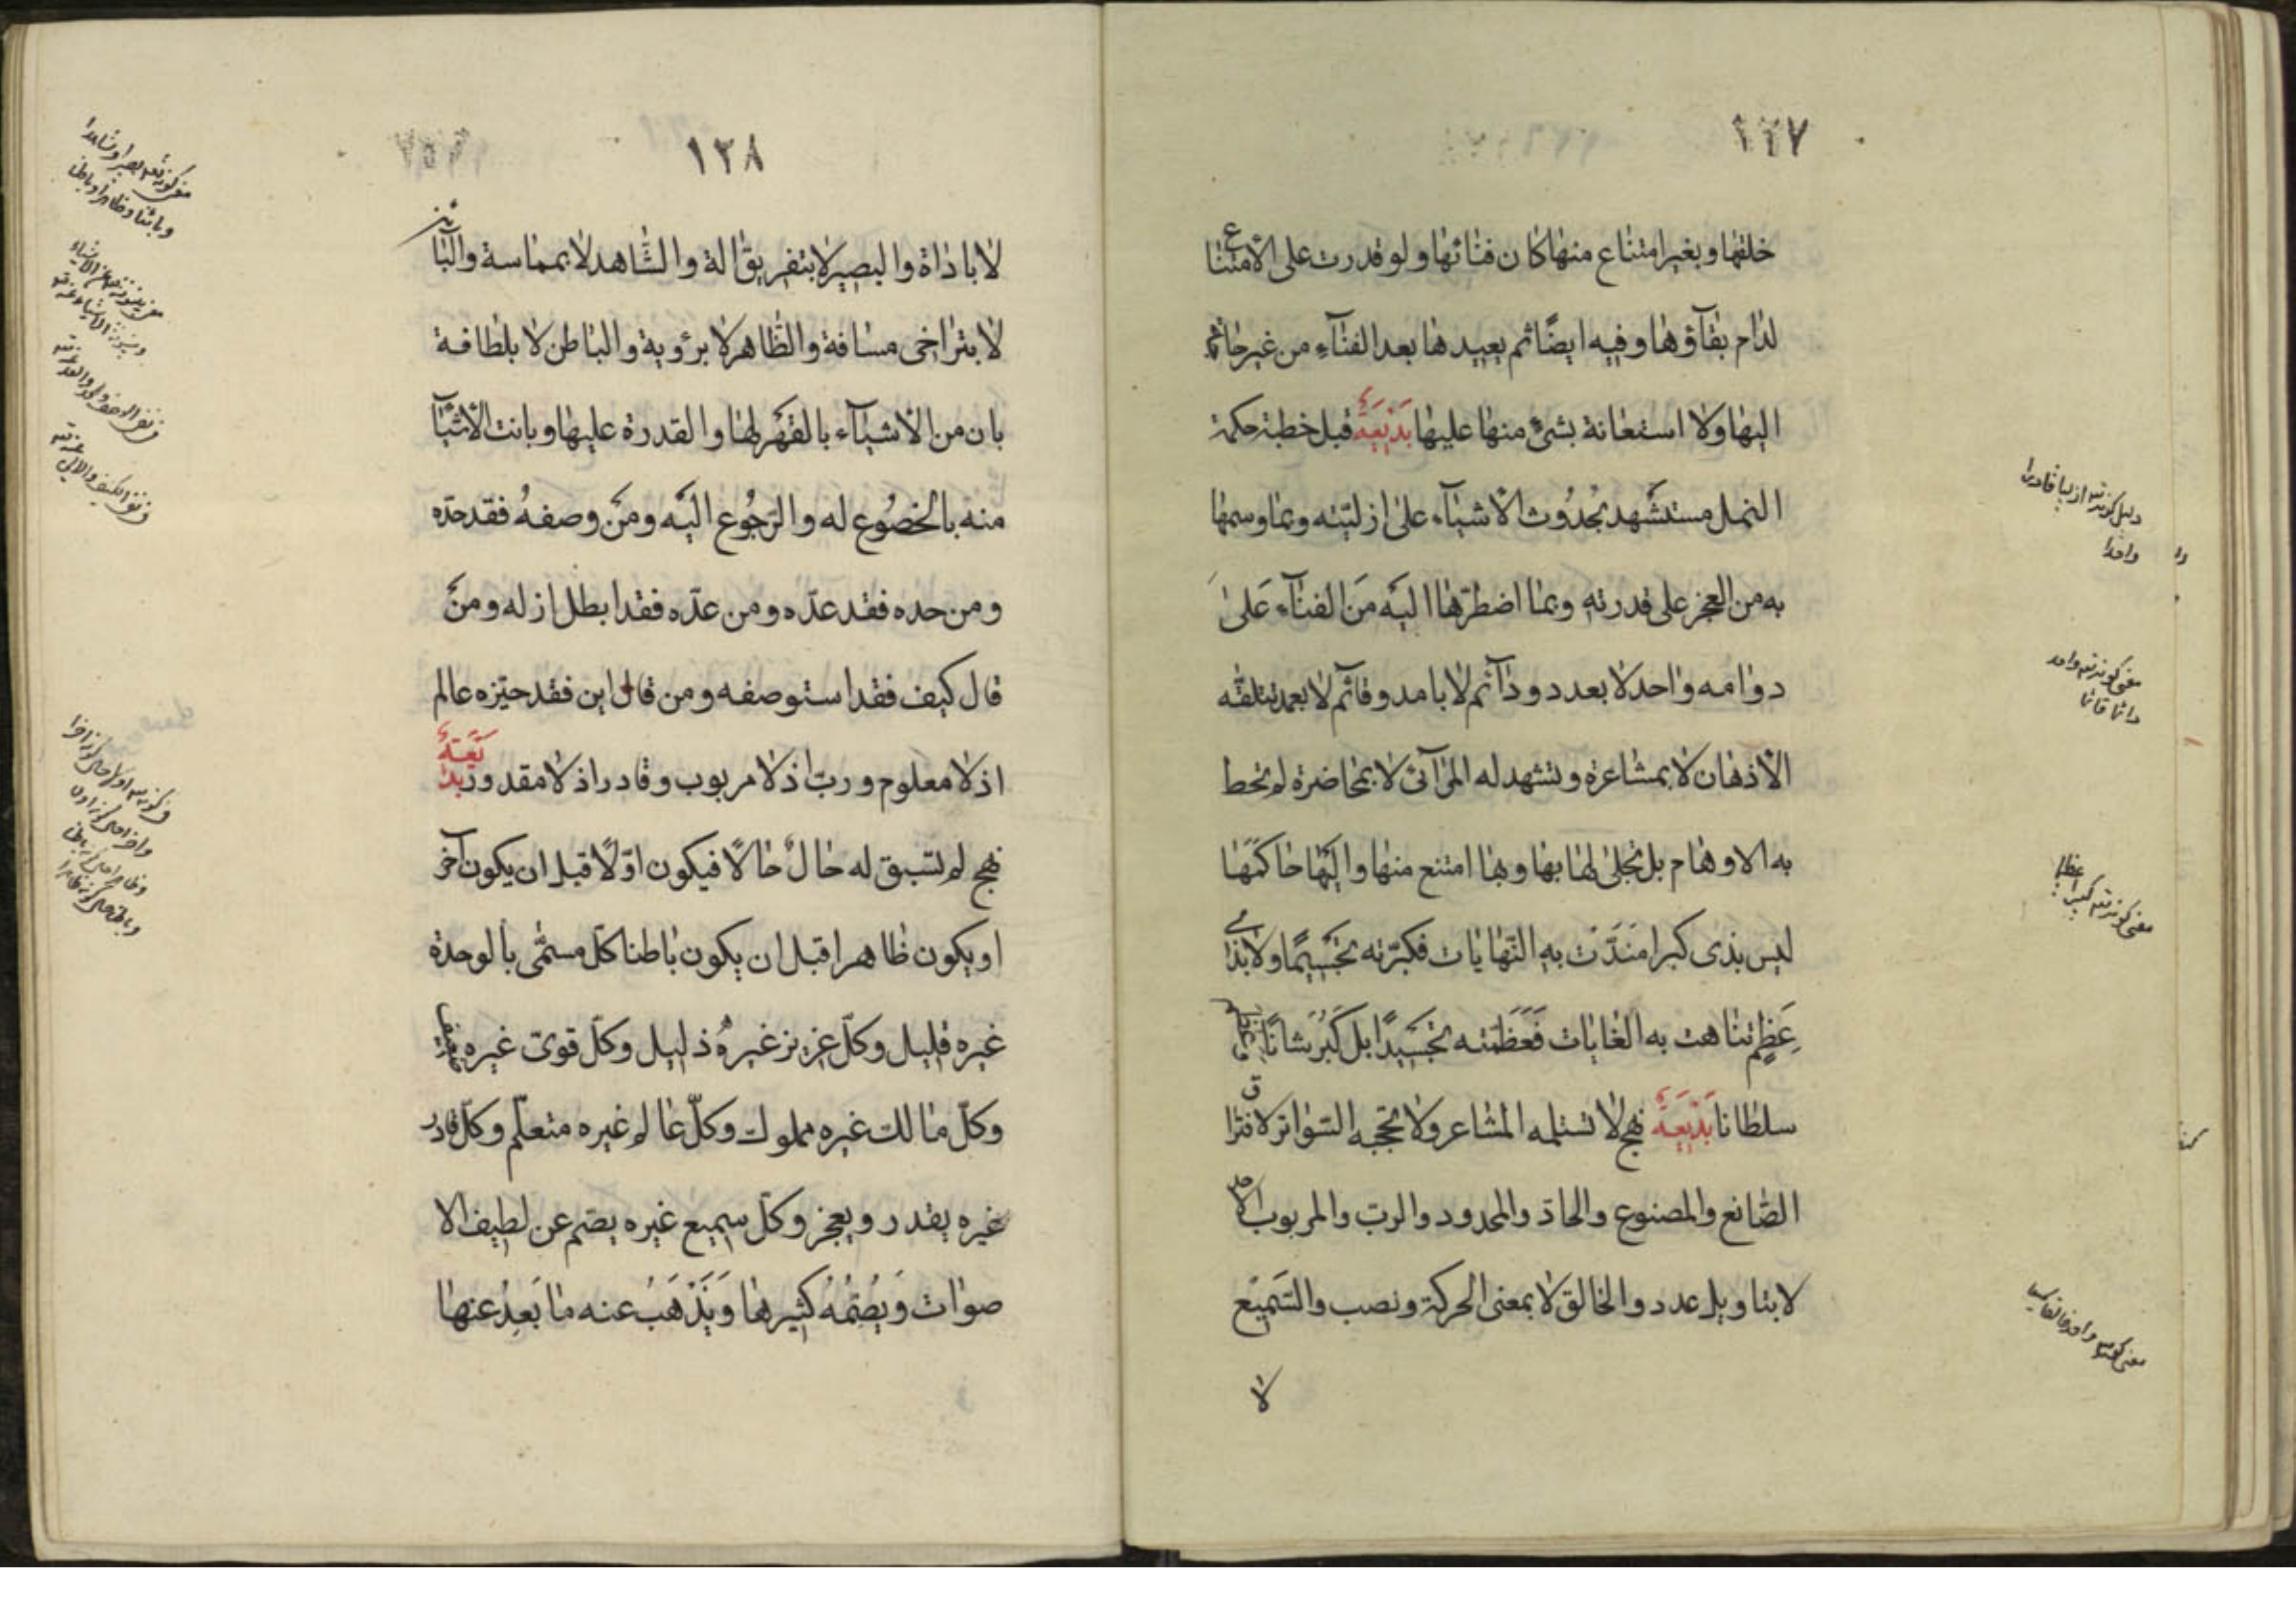 ١٢٧
خلقها وبغير امتناع منها كان فنائها ولو قدرت على الامتناع
لدام بقاؤها وفيه ايضًا ثم يعيدها بعد الفناء من غير حاجة
اليها ولا استعانة بشئ منها عليها بَدْيَعَةٌ قبل خطبة حكمة
النمل مستشهد بحُدُوث الأشياء على ازليّته وبما وسمها
به من العجز على قدرته وبما اضطرّها اليه مَن الفناء عَلىٰ
دوامه واحد لا بعدد ودائم لا بامد وقائم لا بعمد تتلقّه
الأذهان لا بمشاعرة وتشهد له المرآئى لا بمحاضرة لم تحط
به الاوهام بل تجلى لها بها وبها امتنع منها واليها حاكمها
ليس بذى كبر امتدّت به النهايات فكبّرته تجسيمًا ولا بذى
عَظِم تناهت به الغايات فَعَظّمته تجسيدًا بل كَبُرَ شانًا
سلطانا بَدْيَعَةٌ نهج لا تستلمه المشاعر ولا تحجبه السّواتر لافتراق
الصّانع والمصنوع والحادّ والمحدود والربّ والمربوب الاحد
لا بتاويل عدد والخالق لا بمعنى الحركة ونصب والسَّمِيْع
لا
١٢٨
لا باداة والبصير لا بتفريق الة والشّاهد لا بمماسة والبائن
لا بتراخى مسافة والظّاهر لا برؤية والباطن لا بلطافة
بان من الأشياء بالقَهْر لها والقدرة عليها وبانت الأشيآ
منه بالخضُوع له والرّجُوع اليْه ومَن وصفهُ فقد حدّه
ومن حده فقد عدّه ومن عدّه فقد ابطل ازله ومنَ
قال كيف فقد استوصفه ومن قال اين فقد حيّزه عالم
اذ لا معلوم وربّ اذ لا مربوب وقادر اذ لا مقدور بديَعةٌ
نهج لم تسبق له حالٌ حالًا فيكون اوّلًا قبل ان يكون آخر
او يكون ظاهرا قبل ان يكون باطنا كلّ مسمّى بالوحدة
غيره قليل وكلّ عزيز غيرهُ ذليل وكلّ قوىّ غيره
وكلّ مالك غيره مملوك وكلّ عالم غيره متعلّم وكلّ قادر
غيره يقدر ويعجز وكلّ سميع غيره يصّم عن لطيف الا
صوات وَيُصِمُّهُ كثيرها وَيَذْهَبُ عنه ما بَعِدُ عنها